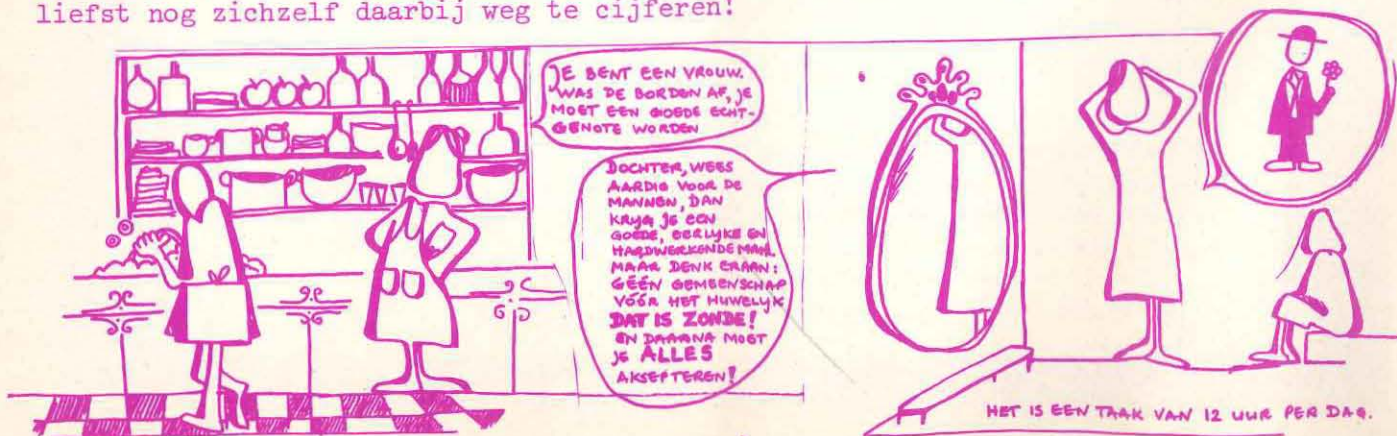 liefst nog zichzelf daarbij weg te cijferen!
JE BENT EEN VROUW.
WAS DE BORDEN AF, JE
MOET EEN GOEDE ECHT-
GENOTE WORDEN
DOCHTER, WEES
AARDIG VOOR DE
MANNEN, DAN
KRYG JE EEN
GOEDE, EERLYKE EN
HARDWERKENDE MAN.
MAAR DENK ERAAN:
GÉÉN GEMEENSCHAP
VÓÓR HET HUWELYK
DAT IS ZONDE!
EN DAARNA MOET
JE ALLES
AKSEPTEREN!
HET IS EEN TAAK VAN 12 UUR PER DAG.